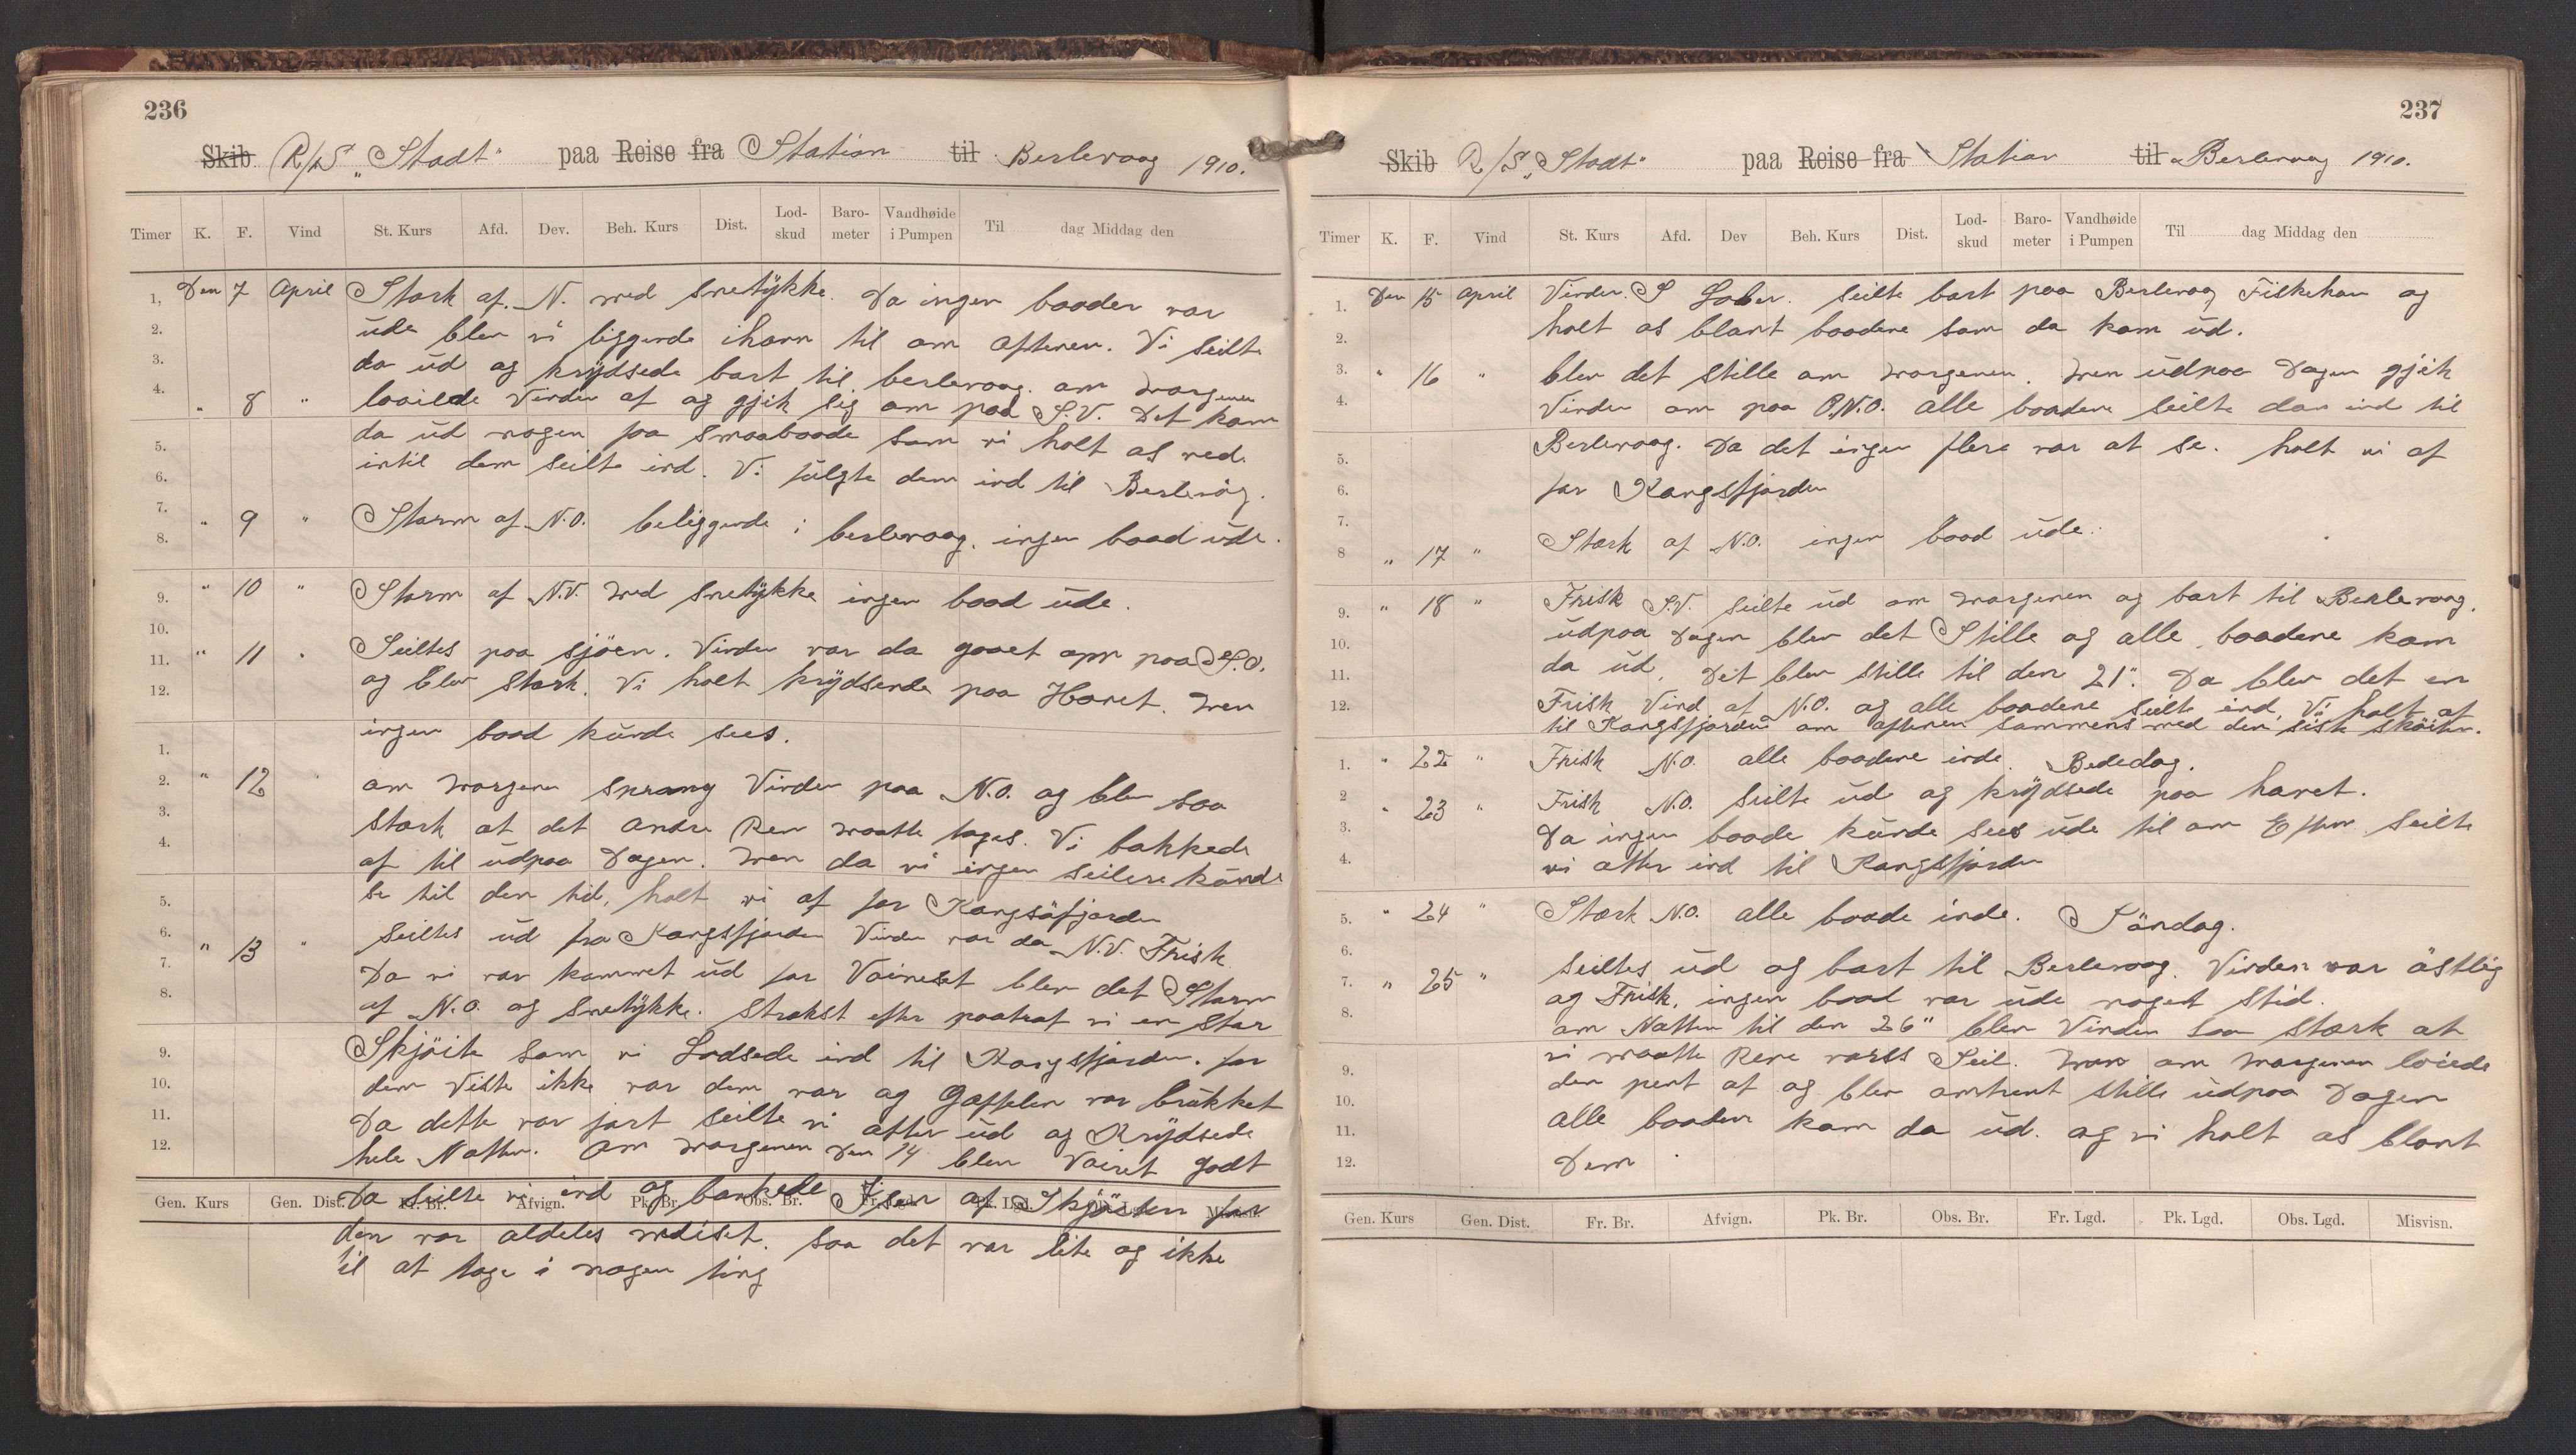 236
Skib R/S „Stadt" paa Reise fra Station til Berlevaag 1910.
Timer K. F. Vind St. Kurs Afd. Dev. Beh. Kurs Dist. Lod-skud Baro-meter Vandhøide i Pumpen Til dag Middag den
Den 7 April Stærk af N. med snetykke. Da ingen baader var
ude blev vi liggende ihavn til om Aftenen. Vi seilte
da ud og krydsede bort til berlevaag. om Morgenen
„ 8 „ løiede Vinden af og gjik sig om paa S.V. Det kom
da ud nogen faa smaabaade som vi holt os ved
intil dem seilte ind. Vi fulgte dem ind til Berlevåg.
„ 9 „ Storm af N.O. beliggende i berlevaag. ingen baad ude.
„ 10 „ Storm af N.V. med snetykke ingen baad ude.
„ 11 „ Seiltes paa sjøen. Vinden var da gaaet opp paa S.O.
og blev stærk. Vi holt krydsende paa Havet. Men
ingen baad kunde sees.
„ 12 „ om Morgenen sprang Vinden paa N.O. og blev saa
stærk at det andre Rev maatte tages. Vi bakkede
af til udpaa Dagen. Men da vi ingen seilere kunde
se til den tid, holt vi af for Kongsøfjorden
„ 13 „ seiltes ud fra Kongsfjorden Vinden var da N.V. Frisk
Da vi var kommet ud for Voineset blev det Storm
af N.O. og snetykke. Strakst efter paatraf vi en stor
Skjöite som vi Lodsede ind til Kongsfjorden. for
dem Viste ikke var dem var og Gaffelen var brükket
Da dette var fort seilte vi atter ud og Krydsede
hele Natten. Om Morgenen Den 14 blev Voiret godt
Da seilte vi ind og bankede Isen af Skjöiten for
den var aldeles nediset. saa det var lite og ikke
til at tage i nogen ting
1. 2. 3. 4. 5. 6. 7. 8. 9. 10. 11. 12.
1. 2. 3. 4. 5. 6. 7. 8. 9. 10. 11. 12.
Gen. Kurs Gen. Dist. Fr. Br. Afvign. Pk. Br. Obs. Br. Fr. Lgd. Pk. Lgd. Obs. Lgd. Misvisn.
237
Skib R/S „Stadt" paa Reise fra Station til Berlevaag 1910.
Timer K. F. Vind St. Kurs Afd. Dev Beh. Kurs Dist. Lod-skud Baro-meter Vandhøide i Pumpen Til dag Middag den
Den 15 April Vinden S Laber. seilte bort paa Berlevaag Fiskehav og
holt os blant baadene som da kom ud.
„ 16 „ blev det stille om Morgenen. Men udpaa Dagen gjik
Vinden om paa O.N.O. alle baadene seilte da ind til
Berlevaag. Da det ingen flere var at se. holt vi af
for Kongsfjorden
„ 17 „ Stærk af N.O. ingen baad ude.
„ 18 „ Frisk S.V. seilte ud om Morgenen og bort til Berlevaag.
udpaa Dagen blev det Stille og alle baadene kom
da ud. Det blev stille til den 21". Da blev det en
Frisk Vind af N.O. og alle baadene seilte ind. Vi holt af
til Kongsfjorden om aftenen sammens med den sisste skøiten.
„ 22 „ Frisk N.O. alle baadene inde. Bededag.
„ 23 „ Frisk N.O. seilte ud og krydsede paa havet.
Da ingen baade kunde sees ude til om Eftm seilte
vi atter ind til Kongsfjorden
„ 24 „ Stærk N.O. alle baade inde. Söndag.
„ 25 „ seiltes ud og bort til Berlevaag. Vinden var östlig
og Frisk, ingen baad var ude noged stid.
om Natten til den 26" blev Vinden saa stærk at
vi maatte Reve vorss Seil. Men om Morgenen løiede
den pent af og blev omtrent stille udpaa Dagen
alle baadene kom da ud. og vi holt os blant
Dem
1. 2. 3. 4. 5. 6. 7. 8 9. 10. 11. 12.
1. 2 3. 4. 5. 6. 7. 8. 9. 10. 11. 12.
Gen. Kurs Gen. Dist. Fr. Br. Afvign. Pk. Br. Obs. Br. Fr. Lgd. Pk. Lgd. Obs. Lgd. Misvisn.